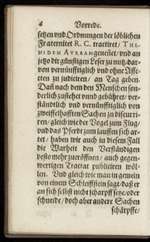 4 Vorrede.
setzen und Ordnungen der löblichen
Fraternitet R. C. tractiret: THE-
MIDEM AUREAM genennet und an
jetzo dir günstigen Leser zu nutz, dar-
von vernünfftiglich und ohne Affe-
cten zu judiciren, an Tag geben.
Daß nach dem den Menschen son-
derlich zustehet und gebühret, ver-
ständlich und vernünfftiglich von
zweiffelhafften Sachen zu discuri-
ren, gleich wie der Vogel zum Flug,
und das Pferd zum lauffen sich ar-
tet, haben wir auch in diesem Fall
die Warheit den Verständigen
desto mehr zu eröffnen, auch gegen-
wertigen Tractat publiciren wöl-
len. Und gleich wie man in gemein
von einem Schleiffstein sagt, daß er
an sich selbst nicht scharpff seye, oder
schneide, doch aber andere Sachen
schärpffe,